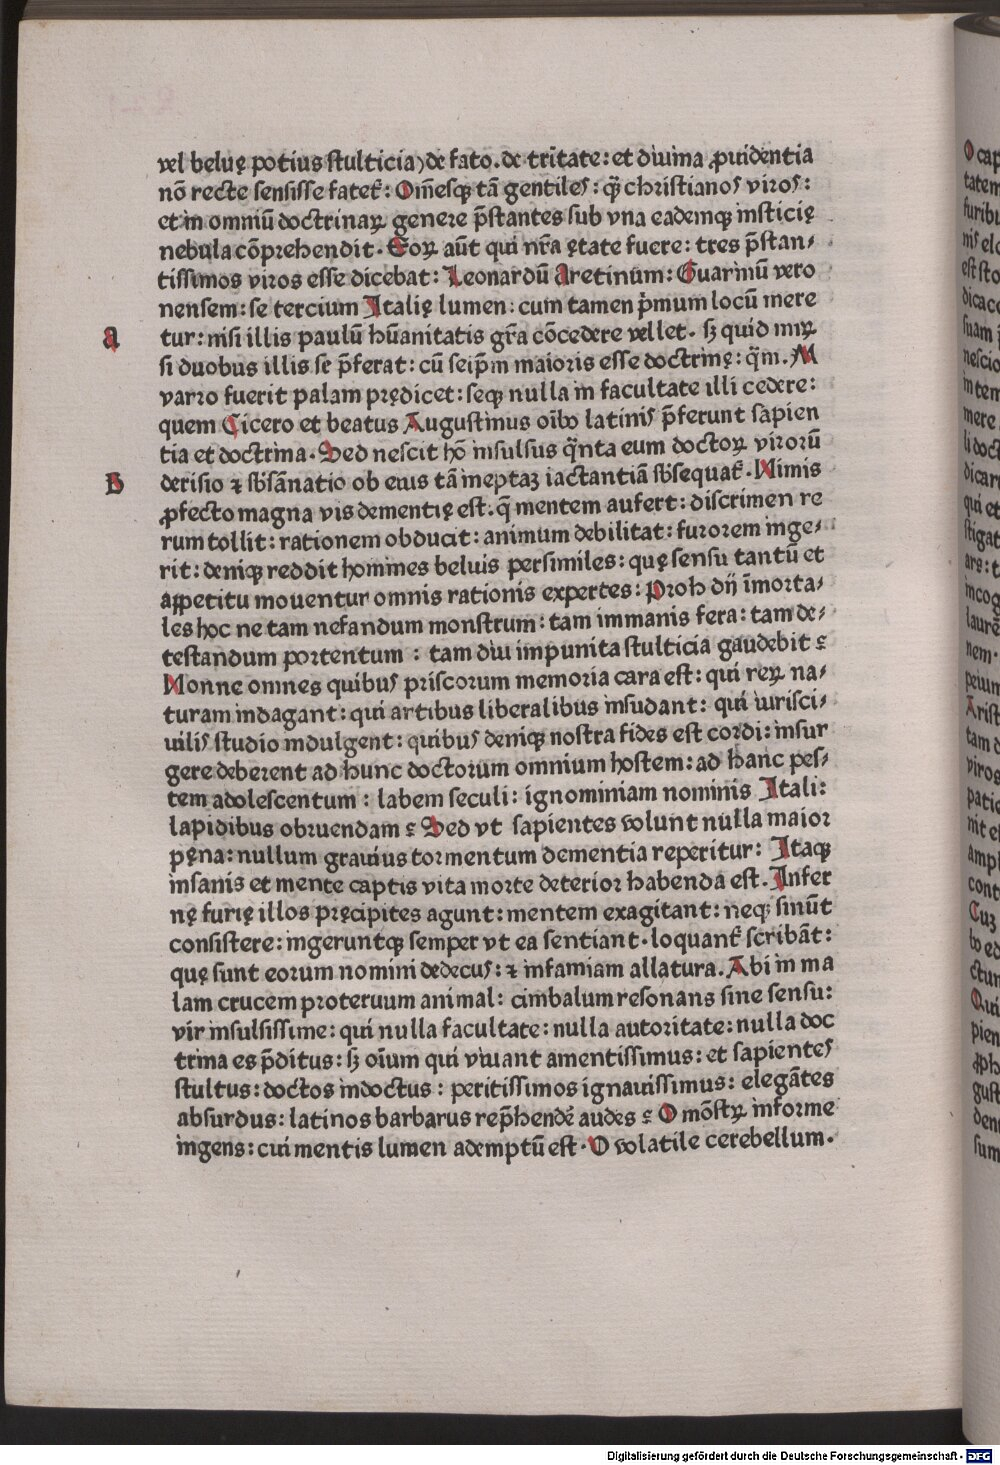 vel beluę potius stulticia) de fato. de tritāte: et diuina ꝓuidentia
nō recte sensisse fatet᷑: Om̄esqꝫ tā gentiles: q̄ꝫ christianos viros:
et in omniū doctrinaꝝ genere p̄stantes sub vna eademqꝫ insticię
nebula cōprehendit. Eoꝝ aūt qui nr̄a ętate fuere: tres p̄stan⸗
tissimos viros esse dicebat: Leonardū Aretinum: Guarinū vero
nensem: se tercium Italię lumen: cum tamen p̄mum locū mere
a
tur: nisi illis paulū hūanitatis gr̄a cōcedere vellet. sꝫ quid miꝝ
si duobus illis se p̄ferat: cū seip̄m maioris esse doctrinę: q̄m. M
varro fuerit palam prędicet: seqꝫ nulla in facultate illi cedere:
quem Cicero et beatus Augustinus oīb⁹ latinis p̄ferunt sapien
tia et doctrina. Sed nescit hō insulsus q̄nta eum doctoꝝ virorū
B
derisio ⁊ sb̄sānatio ob eius tā ineptaꝫ iactantiā sb̄sequat᷑. Nimis
ꝓfecto magna vis dementię est. q̄ mentem aufert: discrimen re
rum tollit: rationem obducit: animum debilitat: furorem inge⸗
rit: deniqꝫ reddit homines beluis persimiles: quę sensu tantū et
appetitu mouentur omnis rationis expertes: Proh dij īmorta⸗
les hoc ne tam nefandum monstrum: tam immanis fera: tam de⸗
testandum portentum : tam diu impunita stulticia gaudebit ?
Nonne omnes quibus priscorum memoria cara est: qui reꝝ na⸗
turam indagant: qui artibus liberalibus insudant: qui iurisci⸗
uilis studio indulgent: quibus deniqꝫ nostra fides est cordi: insur
gere deberent ad hunc doctorum omnium hostem: ad hanc pes⸗
tem adolescentum : labem seculi: ignominiam nominis Itali:
lapidibus obruendam ? Sed vt sapientes volunt nulla maior
pęna: nullum grauius tormentum dementia reperitur: Itaqꝫ
insanis et mente captis vita morte deterior habenda est. Infer
nę furię illos pręcipites agunt: mentem exagitant: neqꝫ sinūt
consistere: ingeruntqꝫ semper vt ea sentiant. loquant᷑ scribāt:
quę sunt eorum nomini dedecus: ⁊ infamiam allatura. Abi in ma
lam crucem proteruum animal: cimbalum resonans sine sensu:
vir insulsissime: qui nulla facultate: nulla autoritate: nulla doc
trina es p̄ditus: sꝫ oīum qui viuant amentissimus: et sapientes
stultus: doctos indoctus : peritissimos ignauissimus: elegātes
absurdus: latinos barbarus rep̄hendē audes ? O mōstꝝ informe
ingens: cui mentis lumen ademptū est. O volatile cerebellum.
Digitalisierung gefördert durch die Deutsche Forschungsgemeinschaft - DFG